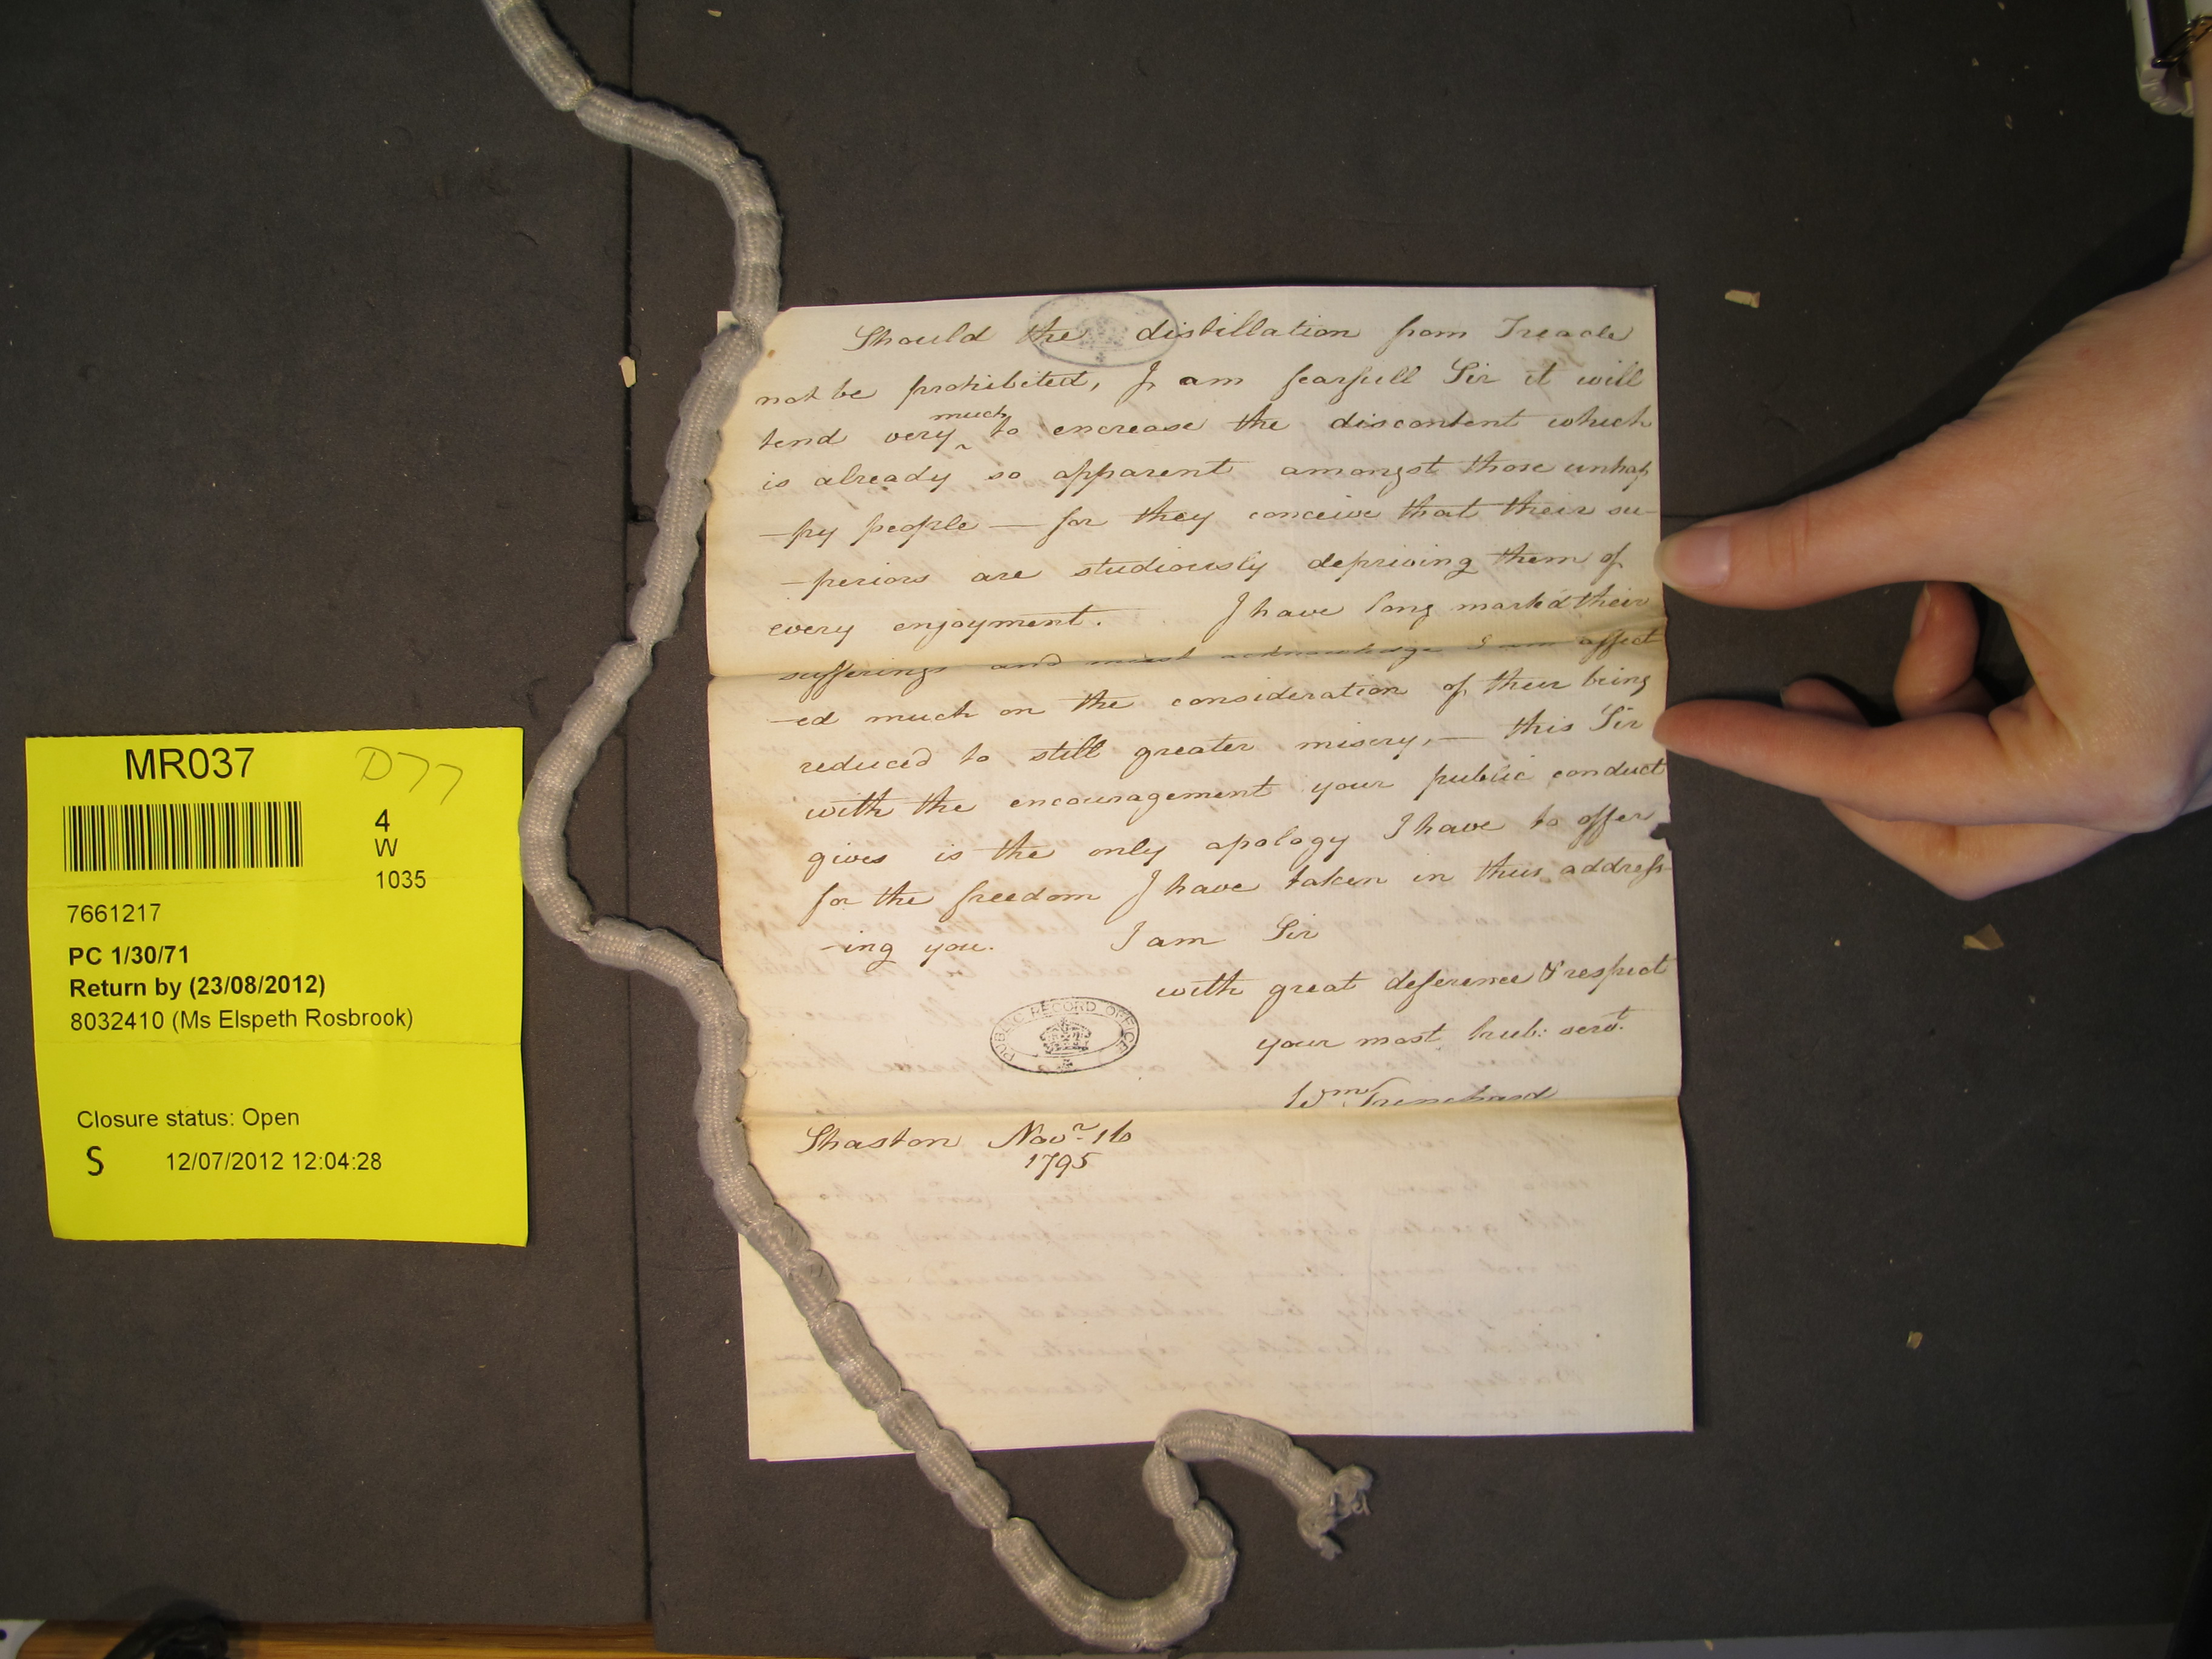 MR037
D77
4
W
1035
7661217
PC 1/30/71
Return by (23/08/2012)
8032410 (Ms Elspeth Rosbrook)
Closure status: Open
S 12/07/2012 12:04:28
Should the distillation from Treacle
not be prohibited, I am fearfull Sir it will
much
tend very ^ to encrease the discontent which
is already so apparent amongst those unhap
-py people — for they conceive that their su-
-periors are studiously depriving them of
every enjoyment. I have long mark'd their
sufferings and must acknowledge I am affect
-ed much on the consideration of their being
reduced to still greater misery, — this Sir
with the encouragement your public conduct
gives is the only apology I have to offer
for the freedom I have taken in thus address-
-ing you. I am Sir
with great deference & respect
your most hub: servt.
Wm Trenchard
PUBLIC RECORD OFFICE
Shaston Novr. 16
1795